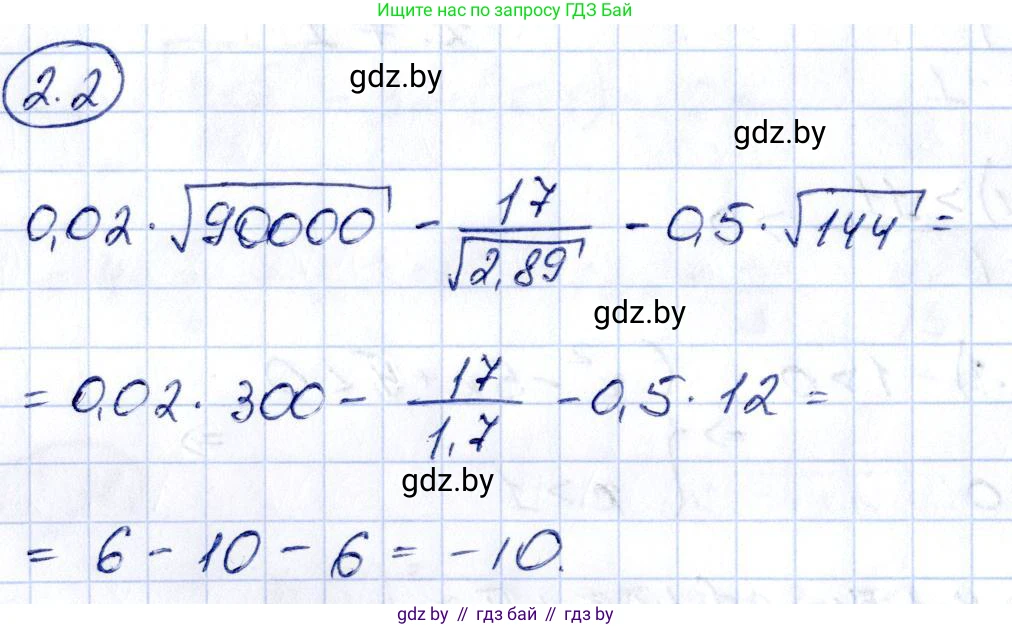 Ищите нас по запросу ГДЗ Бай
2.2
gdz.by
gdz.by
0,02 · √90000 - 17/√2,89 - 0,5 · √144 =
gdz.by
= 0,02 · 300 - 17/1,7 - 0,5 · 12 =
gdz.by
= 6 - 10 - 6 = -10.
gdz.by // гдз бай // gdz by